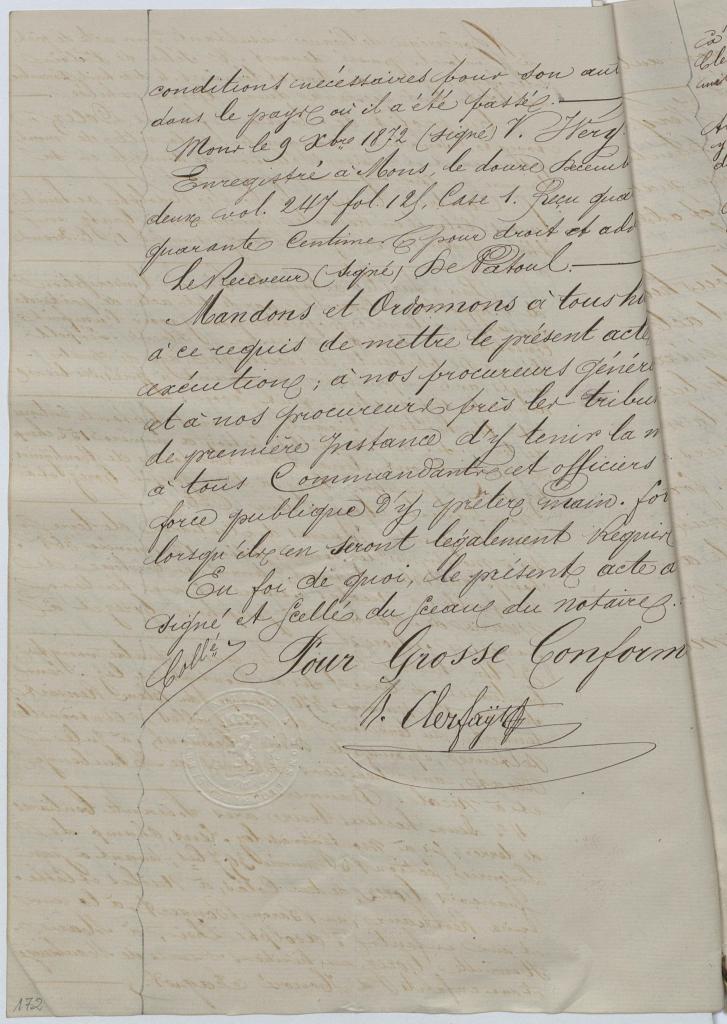 conditions nécessaires pour son au
dans le pays où il a été passé.
Mons le 9 Xbre 1872 (signé) V. Wery.
Enregistré à Mons, le douze Decemb
deux vol. 247 fol. 125, Case 1. Reçu qua
quarante Centimes pour droit et add
Le Receveur (signé) De Patoul.
Mandons et Ordonnons à tous hu
à ce requis de mettre le présent acte
exécution; à nos procureurs génér
et à nos procureurs près les tribu
de première Instance d'y tenir la m
à tous Commandants et officiers
force publique d'y prêter main-for
lorsqu'ils en seront légalement requis
En foi de quoi, le présent acte a
signé et scellé du sceau du notaire.
Collé
Pour Grosse Conform
Clerfayt
172